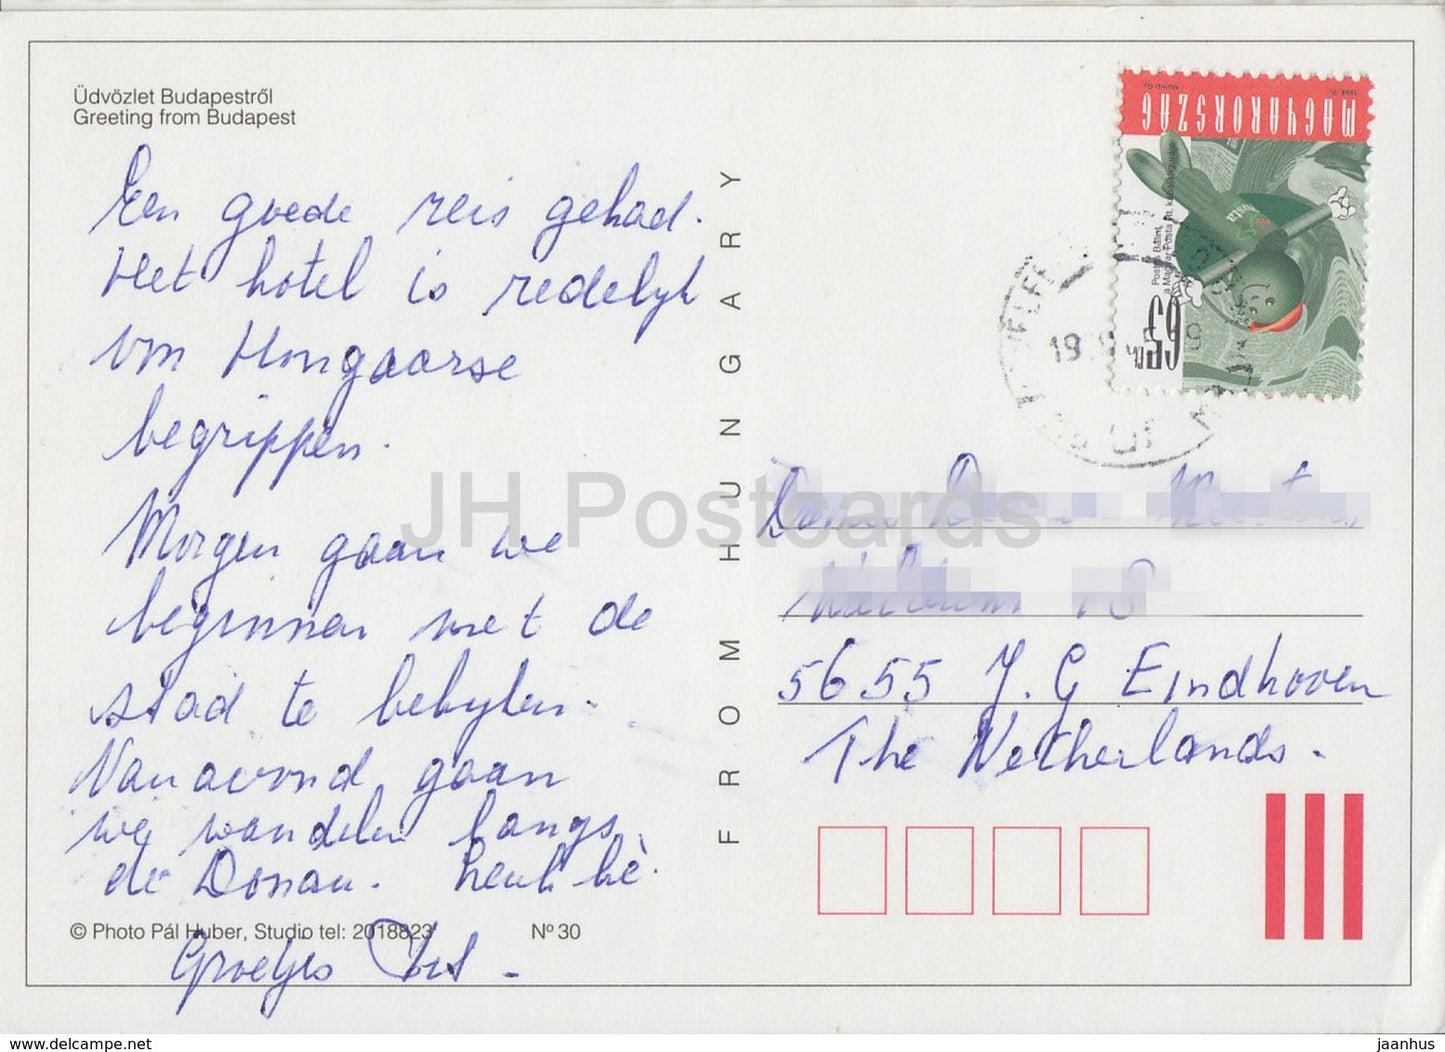 Üdvözlet Budapestről
Greeting from Budapest
Een goede reis gehad.
Het hotel is redelyk
von Hongaarse
begrippen.
Morgen gaan we
beginnen met de
stad te bekyken.
Vanavond gaan
we wandelen langs
de Donau. Leuk hè.
Groetjes
© Photo Pál Huber, Studio tel: 2018823 Nº 30
FROM HUNGARY
MAGYARORSZÁG
65 Ft
5655 J.G Eindhoven
The Netherlands.
JH Postcards
www.delcampe.net
jaanhus